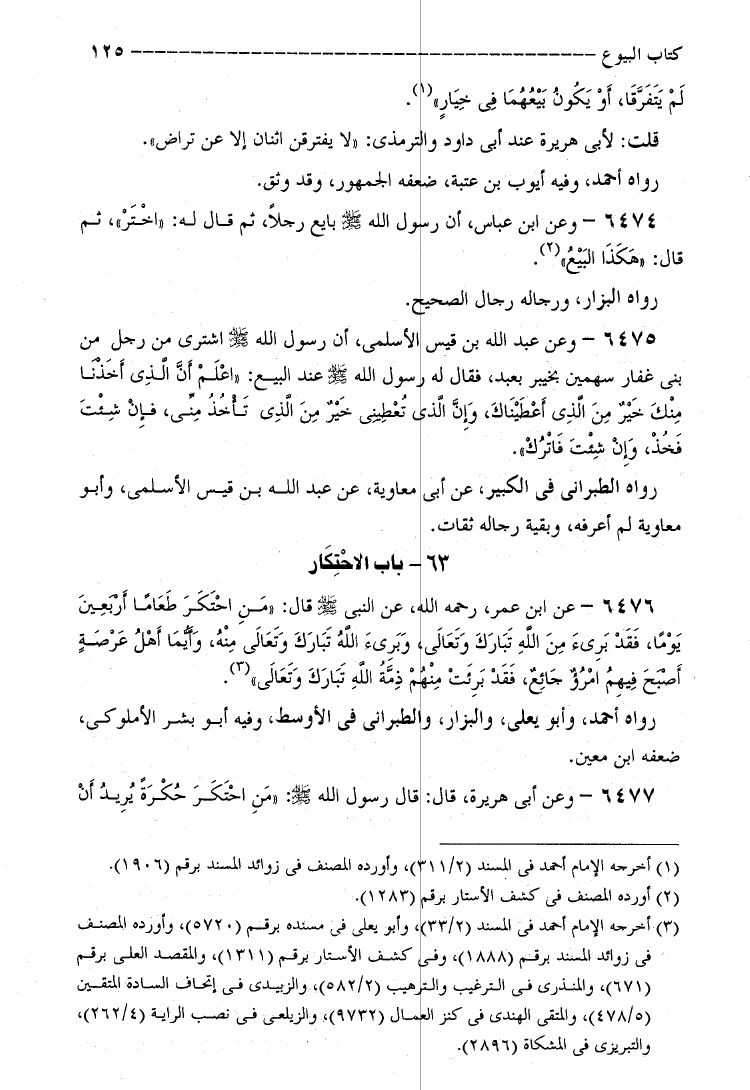 كتاب البيوع ------------------------------------------------ ١٢٥
لَمْ يَتَفَرَّقَا، أَوْ يَكُونُ بَيْعُهُمَا فِى خِيَارٍ»(١).
قلت: لأبى هريرة عند أبى داود والترمذى: «لا يفترقن اثنان إلا عن تراض».
رواه أحمد، وفيه أيوب بن عتبة، ضعفه الجمهور، وقد وثق.
٦٤٧٤ – وعن ابن عباس، أن رسول الله ﷺ بايع رجلاً، ثم قال له: «اخْتَرْ»، ثم
قال: «هَكَذَا البَيْعُ»(٢).
رواه البزار، ورجاله رجال الصحيح.
٦٤٧٥ – وعن عبد الله بن قيس الأسلمى، أن رسول الله ﷺ اشترى من رجل من
بنى غفار سهمين بخيبر بعبد، فقال له رسول الله ﷺ عند البيع: «اعْلَمْ أَنَّ الَّذِى أَخَذْنَا
مِنْكَ خَيْرٌ مِنَ الَّذِى أَعْطَيْنَاكَ، وَإِنَّ الَّذى تُعْطِينِى خَيْرٌ مِنَ الَّذِى تَأْخُذُ مِنِّى، فَإِنْ شِئْتَ
فَخُذْ، وَإِنْ شِئْتَ فَاتْرُكْ».
رواه الطبرانى فى الكبير، عن أبى معاوية، عن عبد الله بن قيس الأسلمى، وأبو
معاوية لم أعرفه، وبقية رجاله ثقات.
٦٣ – باب الاحْتِكَار
٦٤٧٦ – عن ابن عمر، رحمه الله، عن النبى ﷺ قال: «مَنِ احْتَكَرَ طَعَامًا أَرْبَعِينَ
يَوْمًا، فَقَدْ بَرِىءَ مِنَ اللَّهِ تَبَارَكَ وَتَعَالَى، وَبَرِىءَ اللَّهُ تَبَارَكَ وَتَعَالَى مِنْهُ، وَأَيُّمَا أَهْلُ عَرْصَةٍ
أَصْبَحَ فِيهِمُ امْرُؤٌ جَائِعٌ، فَقَدْ بَرِئَتْ مِنْهُمْ ذِمَّةُ اللَّهِ تَبَارَكَ وَتَعَالَى»(٣).
رواه أحمد، وأبو يعلى، والبزار، والطبرانى فى الأوسط، وفيه أبو بشر الأملوكى،
ضعفه ابن معين.
٦٤٧٧ – وعن أبى هريرة، قال: قال رسول الله ﷺ: «مَنِ احْتَكَرَ حُكْرَةً يُرِيدُ أَنْ
(١) أخرجه الإمام أحمد فى المسند (٣١١/٢)، وأورده المصنف فى زوائد المسند برقم (١٩٠٦).
(٢) أورده المصنف فى كشف الأستار برقم (١٢٨٣).
(٣) أخرجه الإمام أحمد فى المسند (٣٣/٢)، وأبو يعلى فى مسنده برقم (٥٧٢٠)، وأورده المصنف
فى زوائد المسند برقم (١٨٨٨)، وفى كشف الأستار برقم (١٣١١)، والمقصد العلى برقم
(٦٧١)، والمنذرى فى الترغيب والترهيب (٥٨٢/٢)، والزبيدى فى إتحاف السادة المتقين
(٤٧٨/٥)، والمتقى الهندى فى كنز العمال (٩٧٣٢)، والزيلعى فى نصب الراية (٢٦٢/٤)،
والتبريزى فى المشكاة (٢٨٩٦).